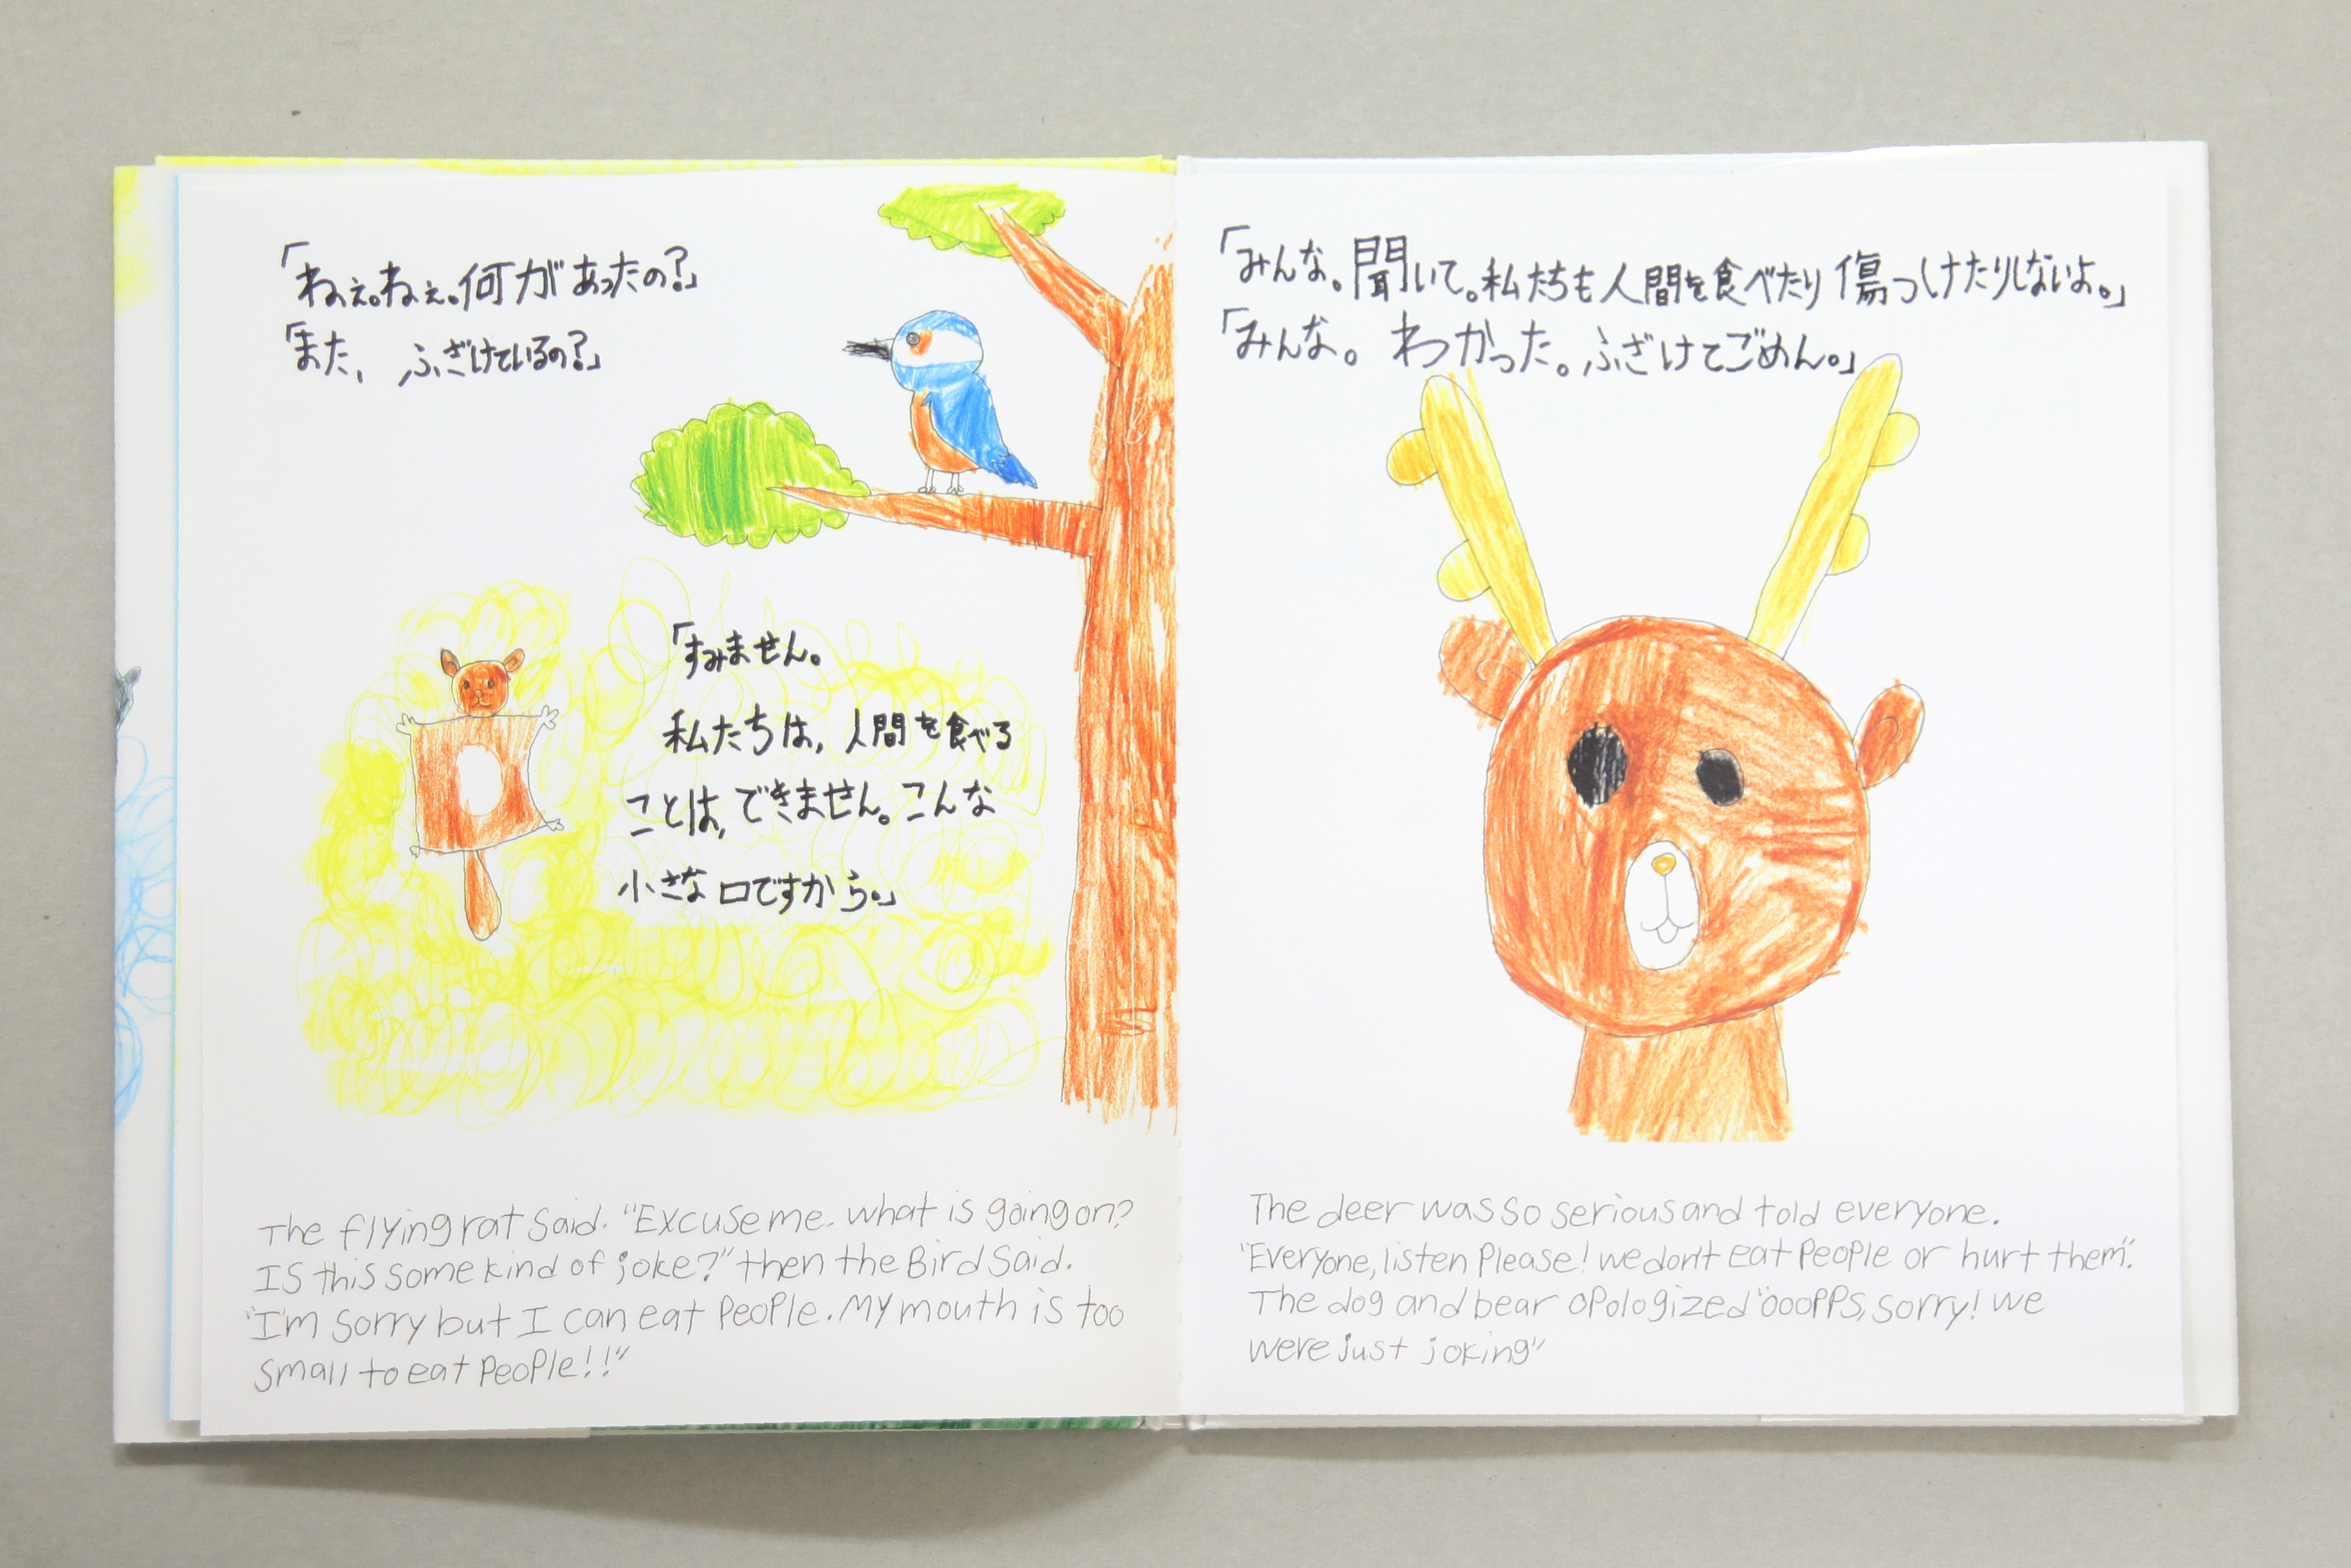 「ねぇ。ねぇ。何があったの?」
「また、ふざけているの?」
「すみません。
私たちは、人間を食べる
ことは、できません。こんな
小さな口ですから。」
The flying rat said. "Excuse me. what is going on?
Is this some kind of joke?" then the Bird said.
"I'm sorry but I can eat people. My mouth is too
small to eat people!!"
「みんな。聞いて。私たちも人間を食べたり傷つけたりしないよ。」
「みんな。わかった。ふざけてごめん。」
The deer was so serious and told everyone.
"Everyone, listen please! we don't eat people or hurt them".
The dog and bear opologized "ooopps, sorry! we
were just joking"